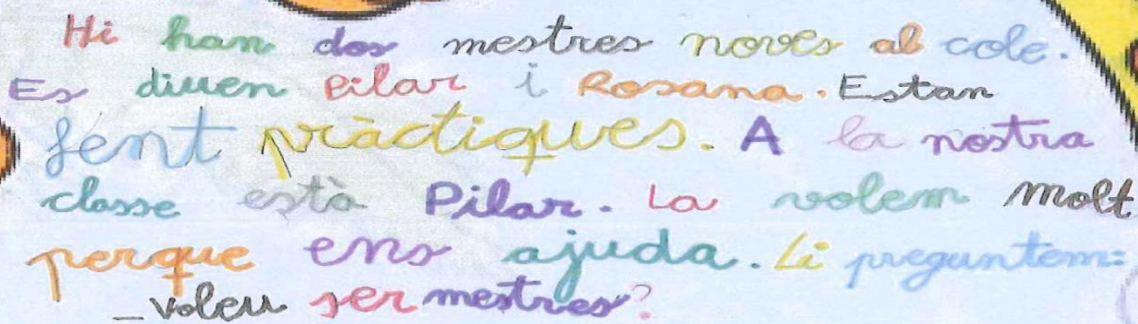 Hi han dos mestres noves al cole.
Es diuen Pilar i Rosana. Estan
fent pràctiques. A la nostra
classe està Pilar. La volem molt
perque ens ajuda. Li preguntem:
_ voleu ser mestres?